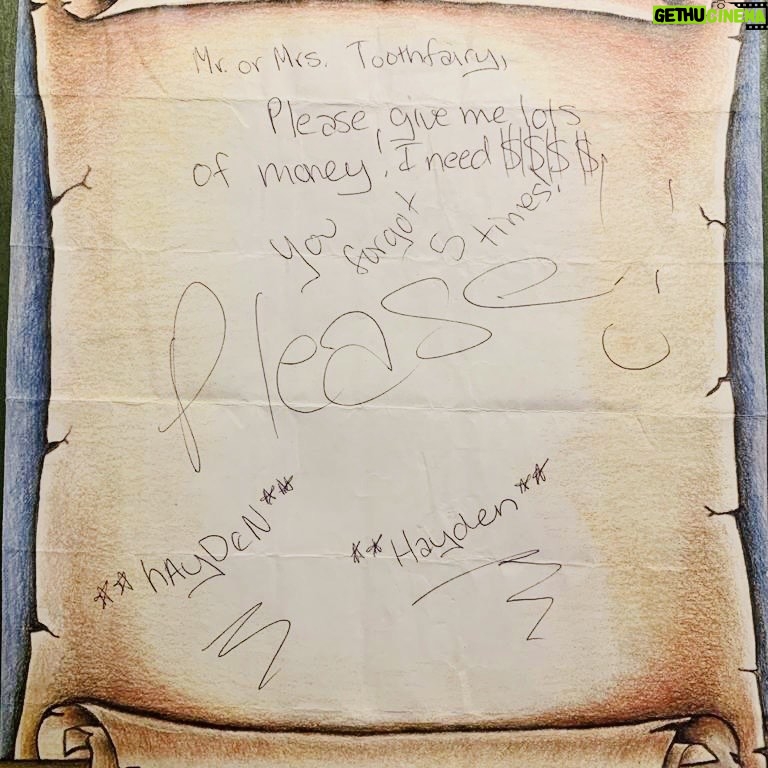 GETHUCINEMA
Mr. or Mrs. Toothfairy,
Please give me lots
of money! I need $$$$,
you forgot 5 times!
Please
**hAyDeN**
**Hayden**